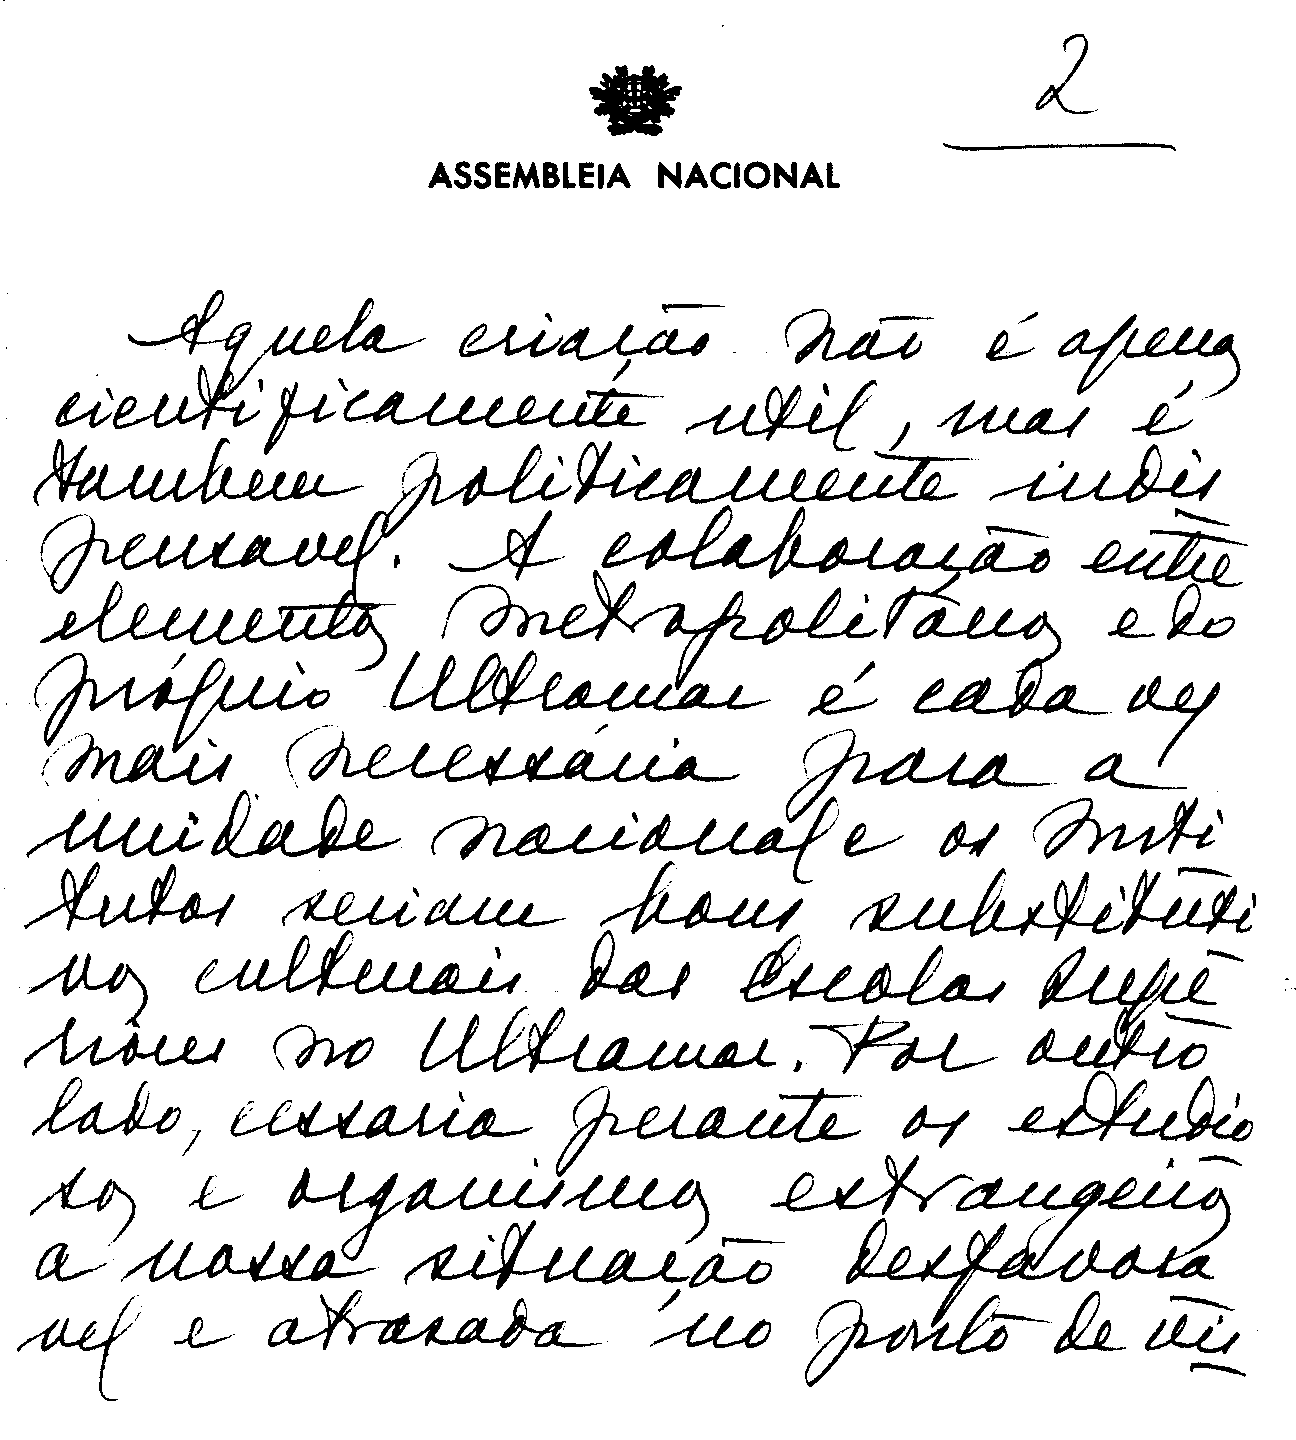 2
ASSEMBLEIA NACIONAL
Aquela criação não é apenas
cientificamente util, mas é
tambem politicamente indis
pensavel. A colaboração entre
elementos metropolitanos e do
próprio Ultramar é cada vez
mais necessária para a
unidade nacional e os Insti
tutos seriam bons substituti
vos culturais das Escolas Supe
riores no Ultramar. Por outro
lado, cessaria perante os estudio
sos e organismos estrangeiros
a nossa situação desfavora
vel e atrasada no ponto de vis